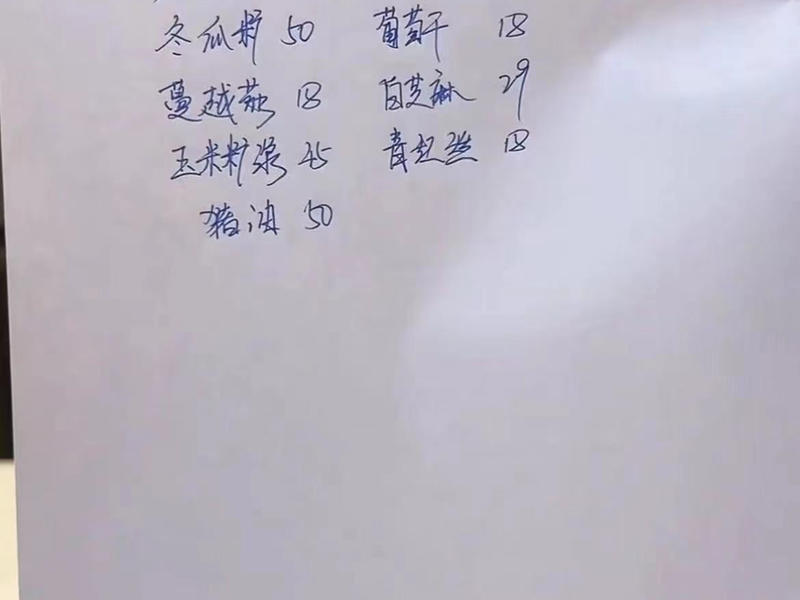 冬瓜籽 50 葡萄干 18
蔓越莓 18 白芝麻 29
玉米籽浆 45 青红丝 18
猪油 50